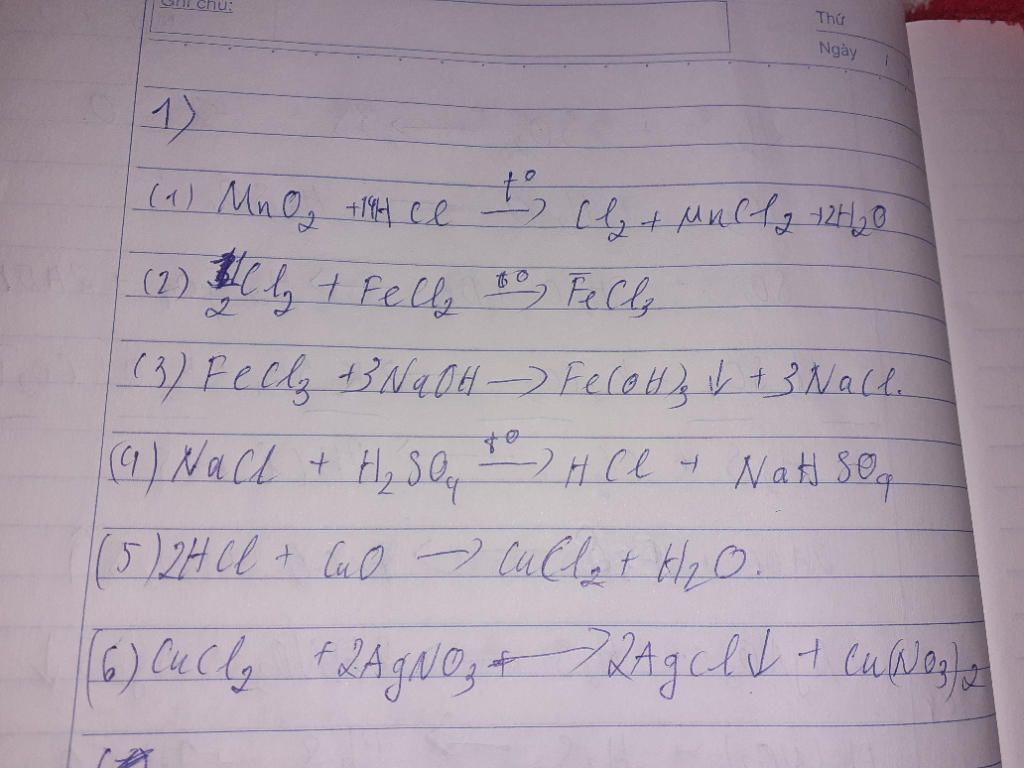 Ghi chú:
Thứ
Ngày /
1)
(1) MnO₂ + 4HCl —t°→ Cl₂ + MnCl₂ + 2H₂O
(2) 1/2 Cl₂ + FeCl₂ —t°→ FeCl₃
(3) FeCl₃ + 3NaOH → Fe(OH)₃ ↓ + 3NaCl.
(4) NaCl + H₂SO₄ —t°→ HCl + NaHSO₄
(5) 2HCl + CuO → CuCl₂ + H₂O.
(6) CuCl₂ + 2AgNO₃ → 2AgCl ↓ + Cu(NO₃)₂